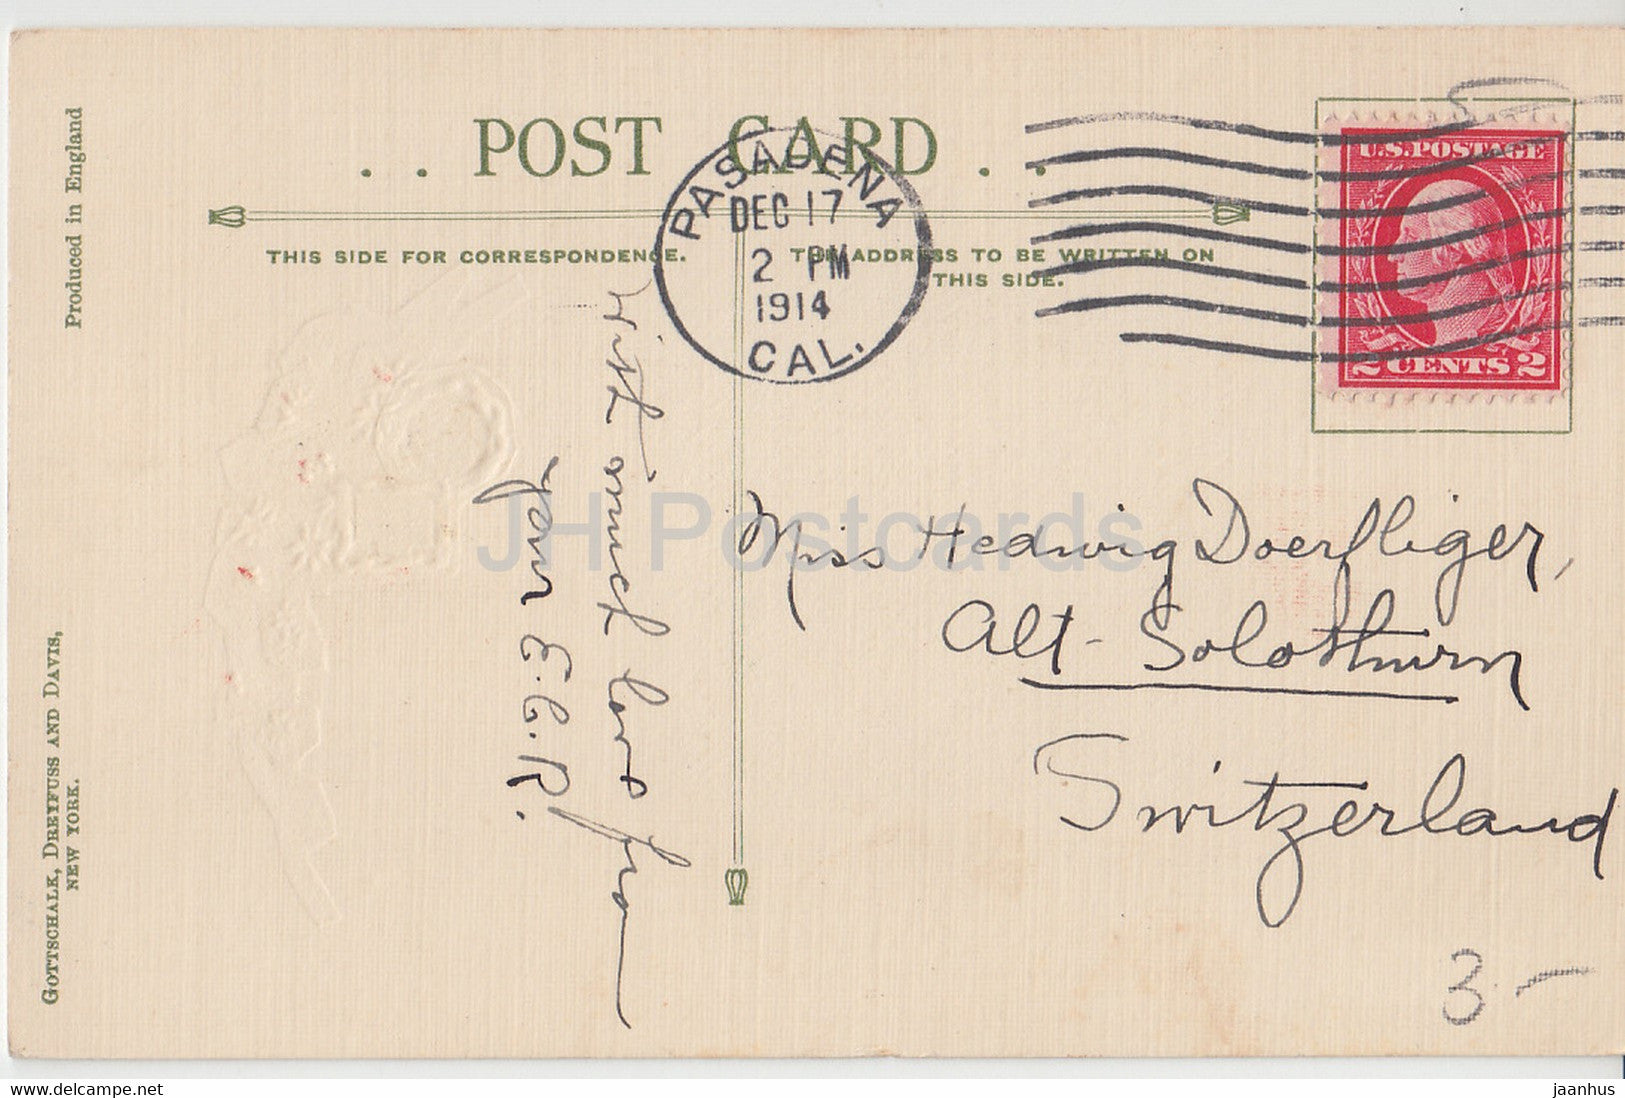 . . POST CARD . .
THIS SIDE FOR CORRESPONDENCE.
THE ADDRESS TO BE WRITTEN ON
THIS SIDE.
PASADENA
DEC 17
2 PM
1914
CAL.
U.S. POSTAGE
2 CENTS 2
Produced in England
GOTTSCHALK, DREYFUSS AND DAVIS,
NEW YORK.
With much love from
your E.C.R.
Miss Hedwig Doerfliger,
Alt-Solothurn
Switzerland
3.-
JH Postcards
delcampe.net
jaanhus